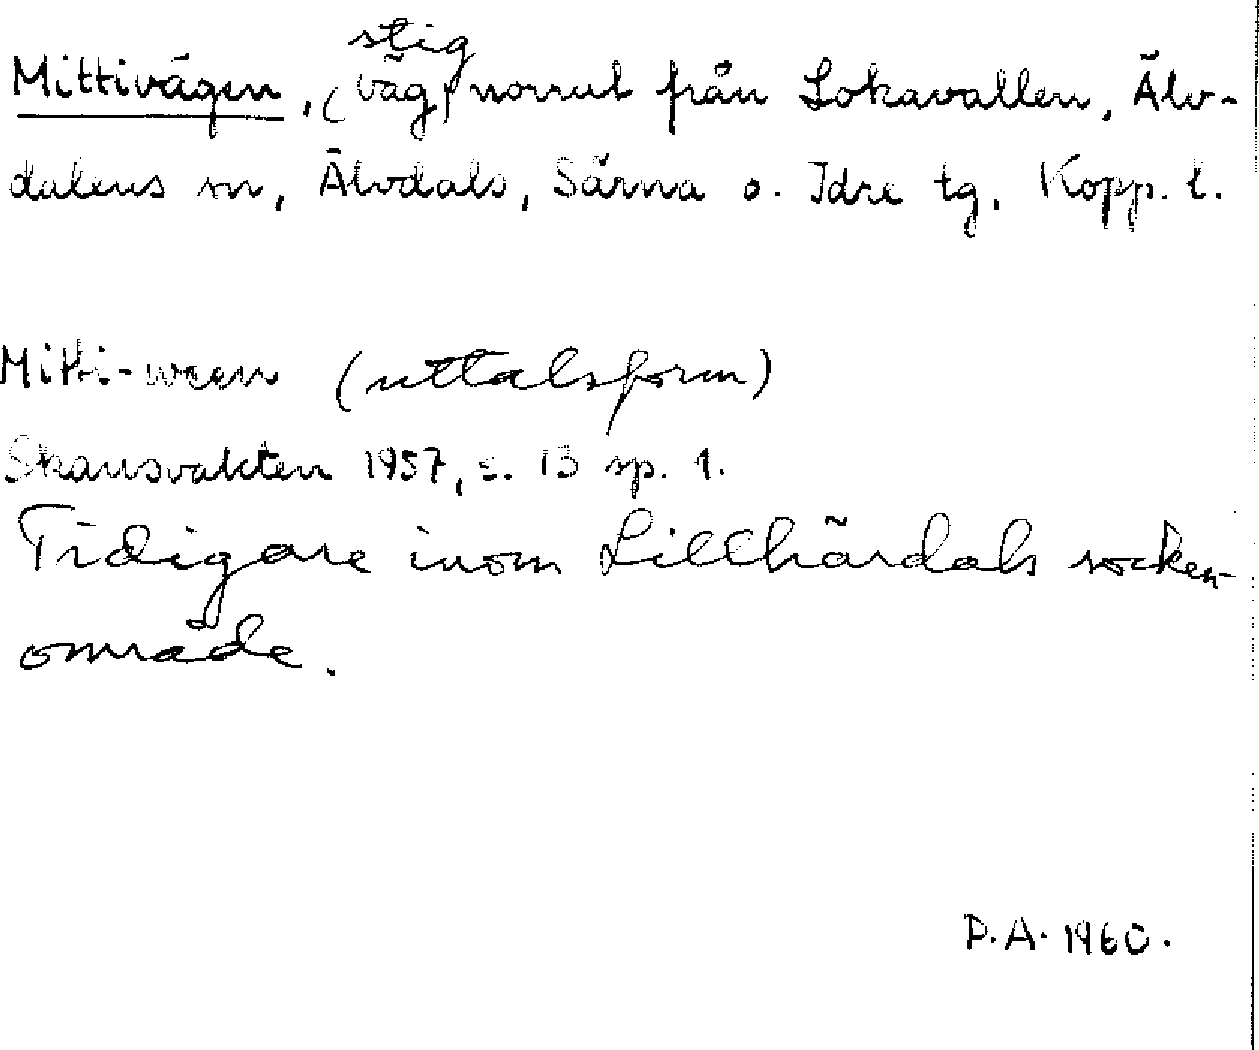 stig
Mittivägen, (väg) norrut från Lokavallen, Älv-
dalens sn, Älvdals, Särna o. Idre tg, Kopp. l.
Mitti-ween (uttalsform)
Skansvakten 1957, s. 13 sp. 1.
Tidigare inom Lillhärdals socken-
område.
D.A. 1960.